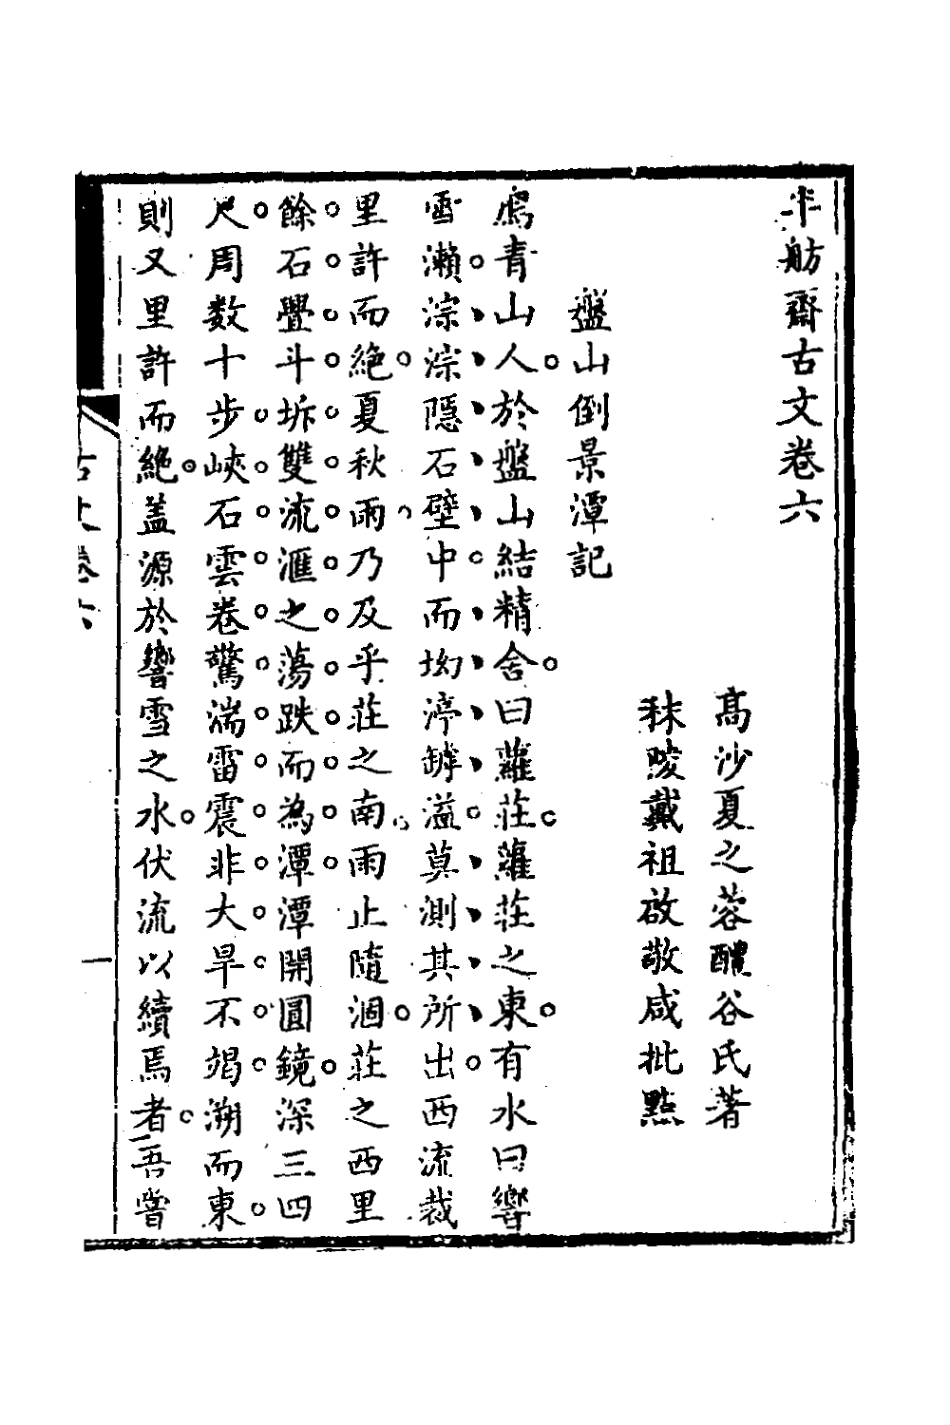 半舫齋古文卷六
高沙夏之蓉醴谷氏著
秣陵戴祖啟敬咸批點
盤山倒景潭記
鳫青山人於盤山結精舍曰蘿莊蘿莊之東有水曰響
雪瀨淙淙隱石壁中而坳渟罅溢莫測其所出西流裁
里許而絕夏秋雨乃及乎莊之南雨止隨涸莊之西里
餘石疊斗坼雙流滙之蕩跌而為潭潭開圓鏡深三四
尺周数十步峽石雲卷驚湍雷震非大旱不竭溯而東
則又里許而絕蓋源於響雪之水伏流以續焉者吾嘗
古文卷六
一